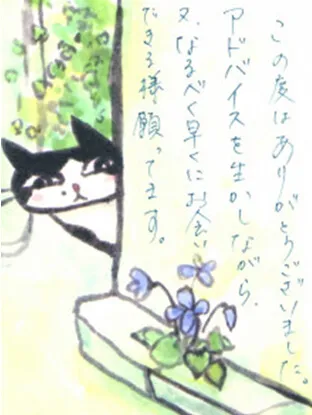 この度はありがとうございました。
アドバイスを生かしながら、
又、なるべく早くにお会い
できる様願ってます。